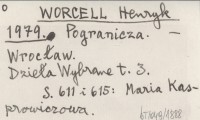 WORCELL Henryk
1979. Pogranicza. —
Wrocław.
Dzieła Wybrane t. 3.
S. 611 i 615: Maria Kas-
prowiczowa.